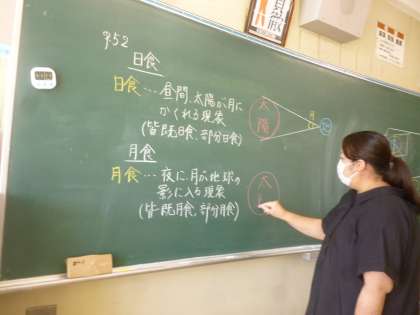 P52
日食
日食…昼間、太陽が月に
かくれる現象
(皆既日食、部分日食)
太
陽
月
地
月食
月食…夜に、月が地球の
影に入る現象
(皆既月食、部分月食)
太